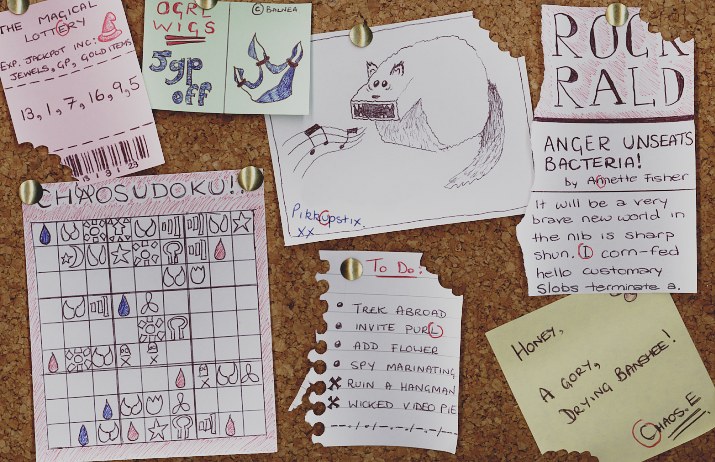 THE MAGICAL
LOTTERY
EXP. JACKPOT INC:
JEWELS, GP, GOLD ITEMS
13, 1, 7, 16, 9, 5
OGRE
WIGS
5gp
off
© BALNEA
Pikkupstix
xx
ROCK
RALD
ANGER UNSEATS
BACTERIA!
by Annette Fisher
It will be a very
brave new world in
the nib is sharp
shun. I corn-fed
hello customary
Slobs terminate a.
CHAOSUDOKU!!
To Do:
TREK ABROAD
INVITE PURL
ADD FLOWER
SPY MARINATING
RUIN A HANGMAN
WICKED VIDEO PIE
HONEY,
A GORY,
DRYING BANSHEE!
CHAOS.E